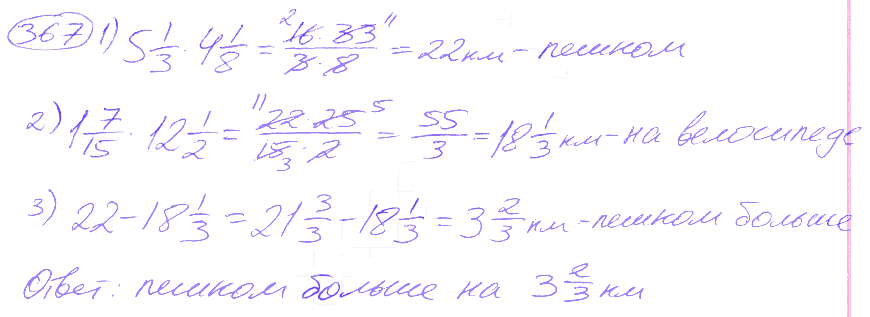 367 1) 5 1/3 · 4 1/8 = (16 · 33)/(3 · 8) = 22 км – пешком
2) 1 7/15 · 12 1/2 = (22 · 25)/(15 · 2) = 55/3 = 18 1/3 км – на велосипеде
3) 22 – 18 1/3 = 21 3/3 – 18 1/3 = 3 2/3 км – пешком больше
Ответ: пешком больше на 3 2/3 км